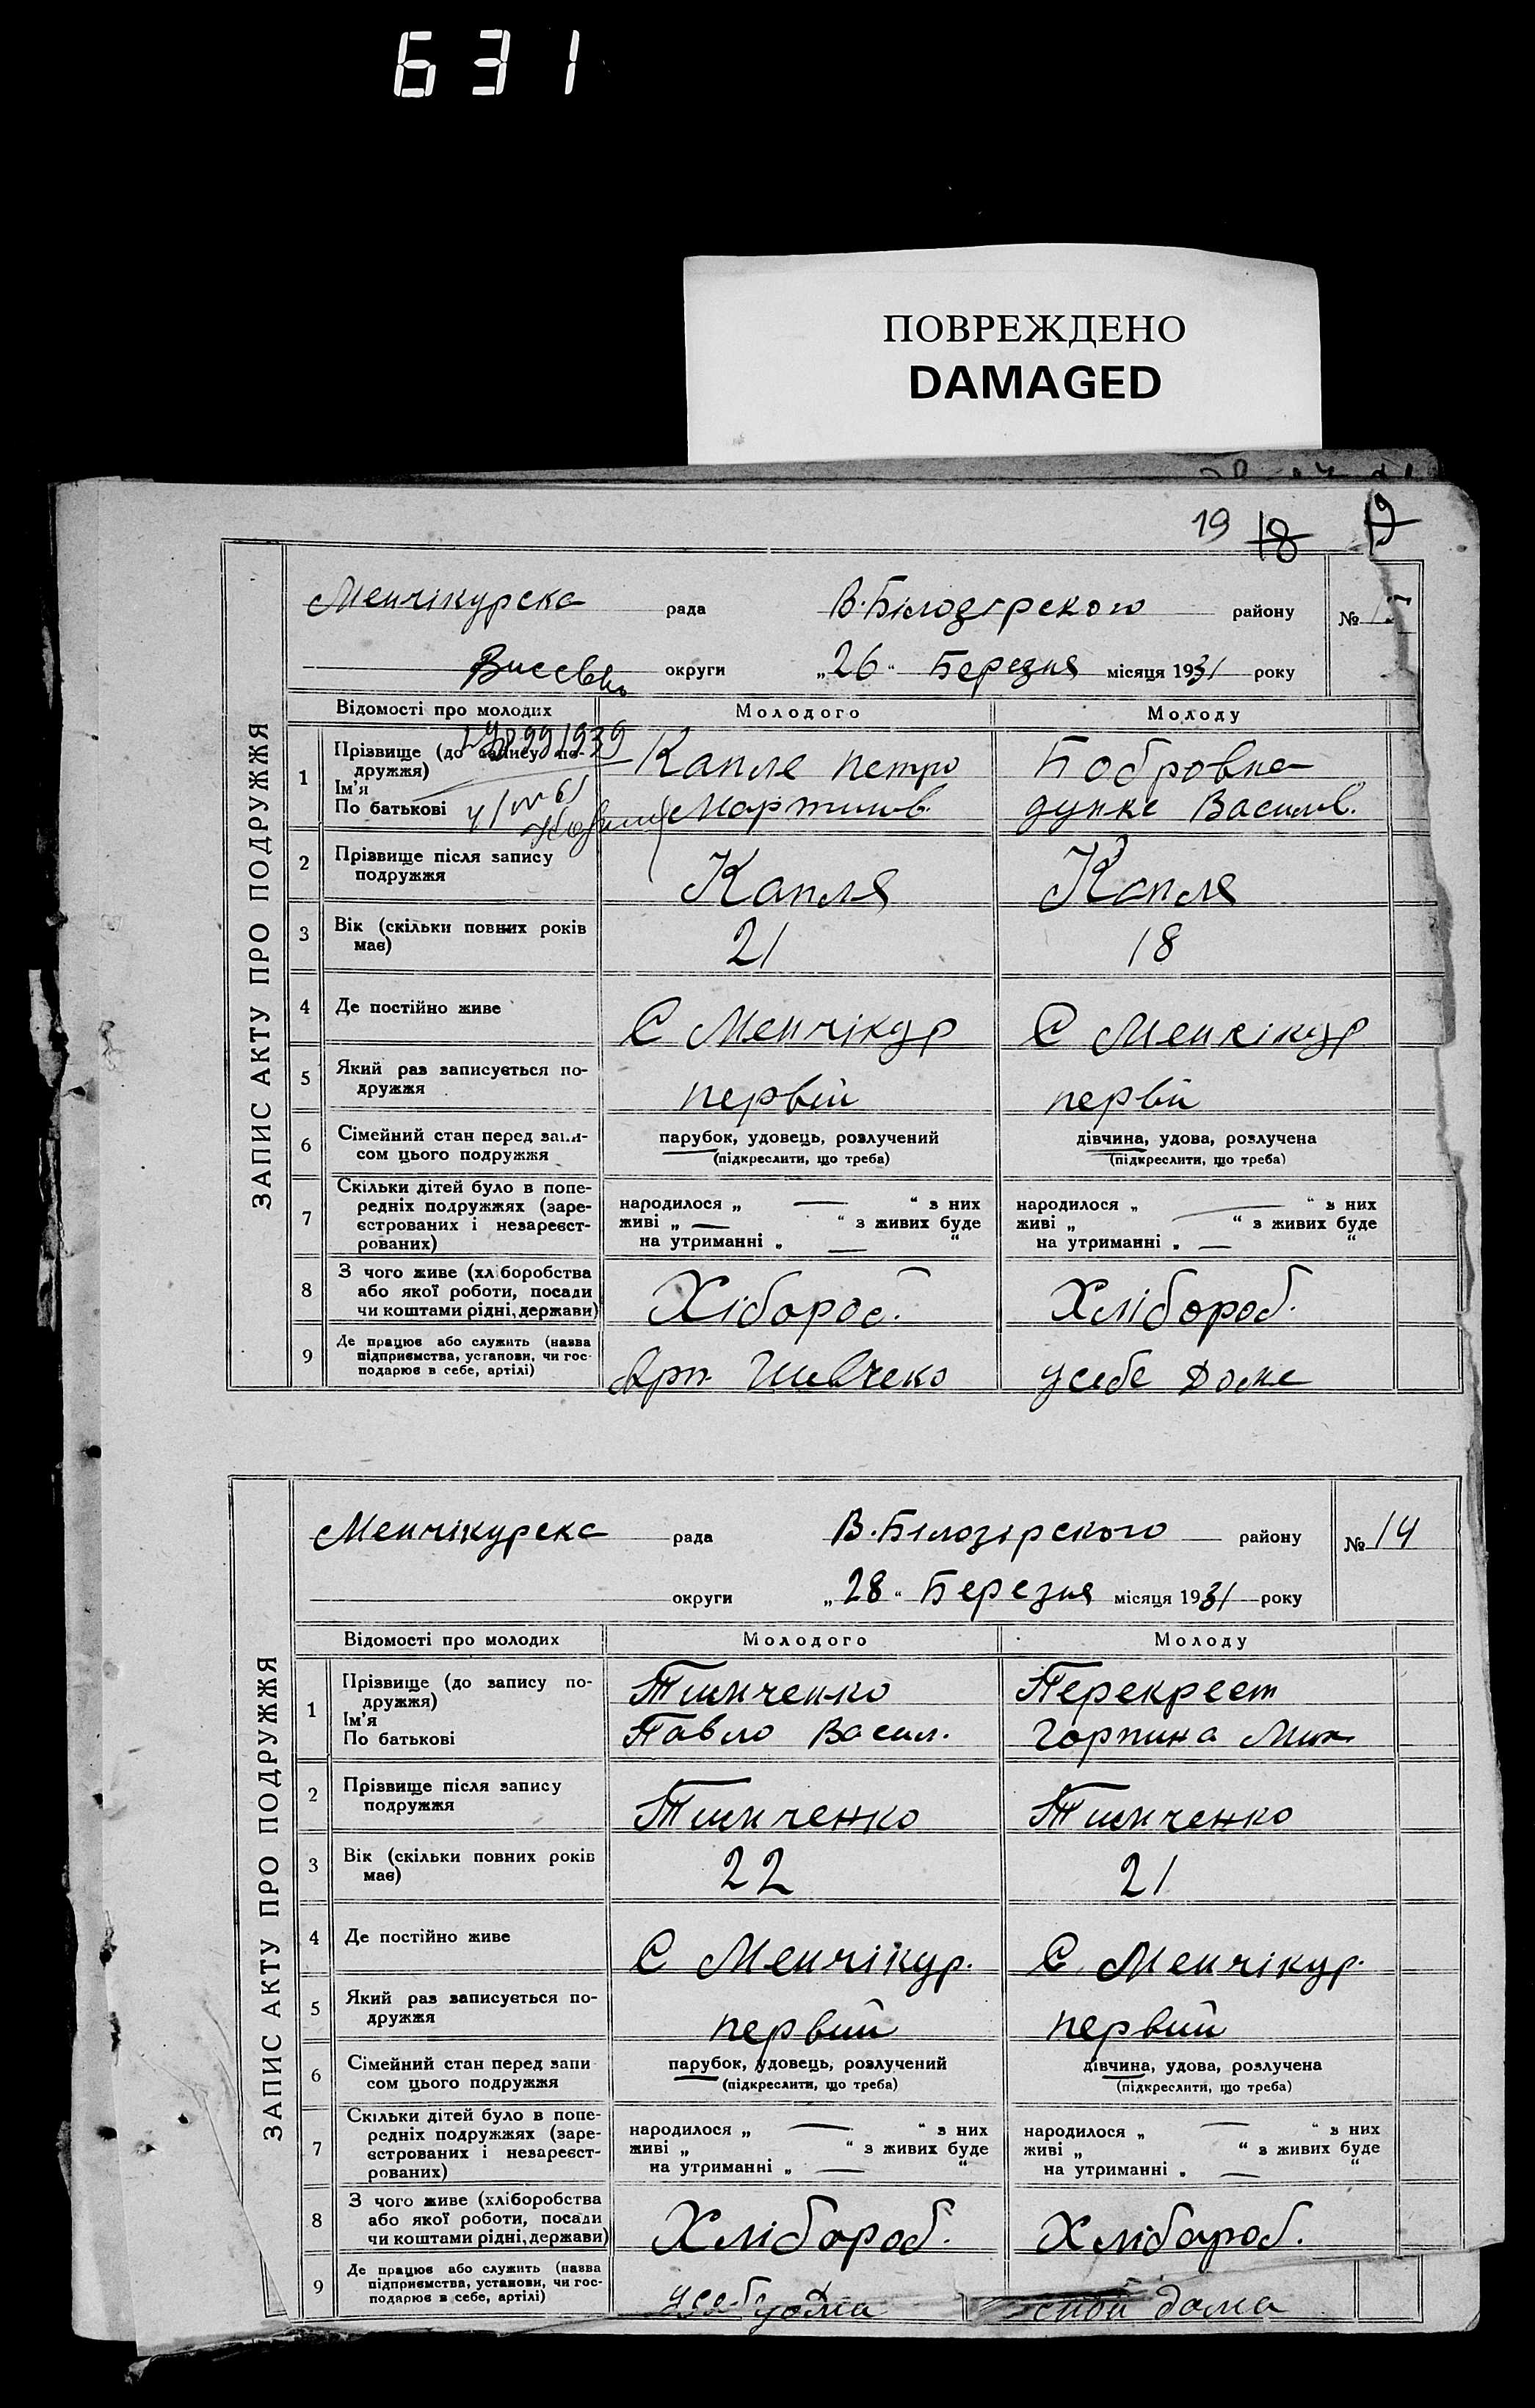 631
ПОВРЕЖДЕНО
DAMAGED
19 18 19
ЗАПИС АКТУ ПРО ПОДРУЖЖЯ
Менчікурска рада В.Білозірского району №
округи „26“ Березня місяця 1931 року
Відомості про молодих Молодого Молоду
1 Прізвище (до запису по-
дружжя)
Ім'я
По батькові
Капля Петро
Мартинов.
Бобровна
Василів.
2 Прізвище після запису
подружжя
Капля Капля
3 Вік (скільки повних років
має)
21 18
4 Де постійно живе
С Менчікур С Менчікур
5 Який раз записується по-
дружжя
первій первій
6 Сімейний стан перед запи-
сом цього подружжя
парубок, удовець, розлучений
(підкреслити, що треба)
дівчина, удова, розлучена
(підкреслити, що треба)
7 Скільки дітей було в попе-
редніх подружжях (заре-
єстрованих і незареєст-
рованих)
народилося „ — “ з них
живі „ — “ з живих буде
на утриманні „ — “
народилося „ — “ з них
живі „ “ з живих буде
на утриманні „ — “
8 З чого живе (хліборобства
або якої роботи, посади
чи коштами рідні, держави)
Хібороб. Хлібороб.
9 Де працює або служить (назва
підприємства, установи, чи гос-
подарює в себе, артілі)
Арт. Шевчеко усебе Дома
ЗАПИС АКТУ ПРО ПОДРУЖЖЯ
Менчікурска рада В.Білозірского району № 14
округи „28“ Березня місяця 1931 року
Відомості про молодих Молодого Молоду
1 Прізвище (до запису по-
дружжя)
Ім'я
По батькові
Тимченко
Павло Васил.
Перекрест
Горпина Мих
2 Прізвище після запису
подружжя
Тимченко Тимченко
3 Вік (скільки повних років
має)
22 21
4 Де постійно живе
С Менчікур. С. Менчікур.
5 Який раз записується по-
дружжя
первий первий
6 Сімейний стан перед запи
сом цього подружжя
парубок, удовець, розлучений
(підкреслити, що треба)
дівчина, удова, розлучена
(підкреслити, що треба)
7 Скільки дітей було в попе-
редніх подружжях (заре-
єстрованих і незареєст-
рованих)
народилося „ — “ з них
живі „ “ з живих буде
на утриманні „ — “
народилося „ — “ з них
живі „ “ з живих буде
на утриманні „ — “
8 З чого живе (хліборобства
або якої роботи, посади
чи коштами рідні, держави)
Хлібороб. Хлібороб.
9 Де працює або служить (назва
підприємства, установи, чи гос-
подарює в себе, артілі)
дома